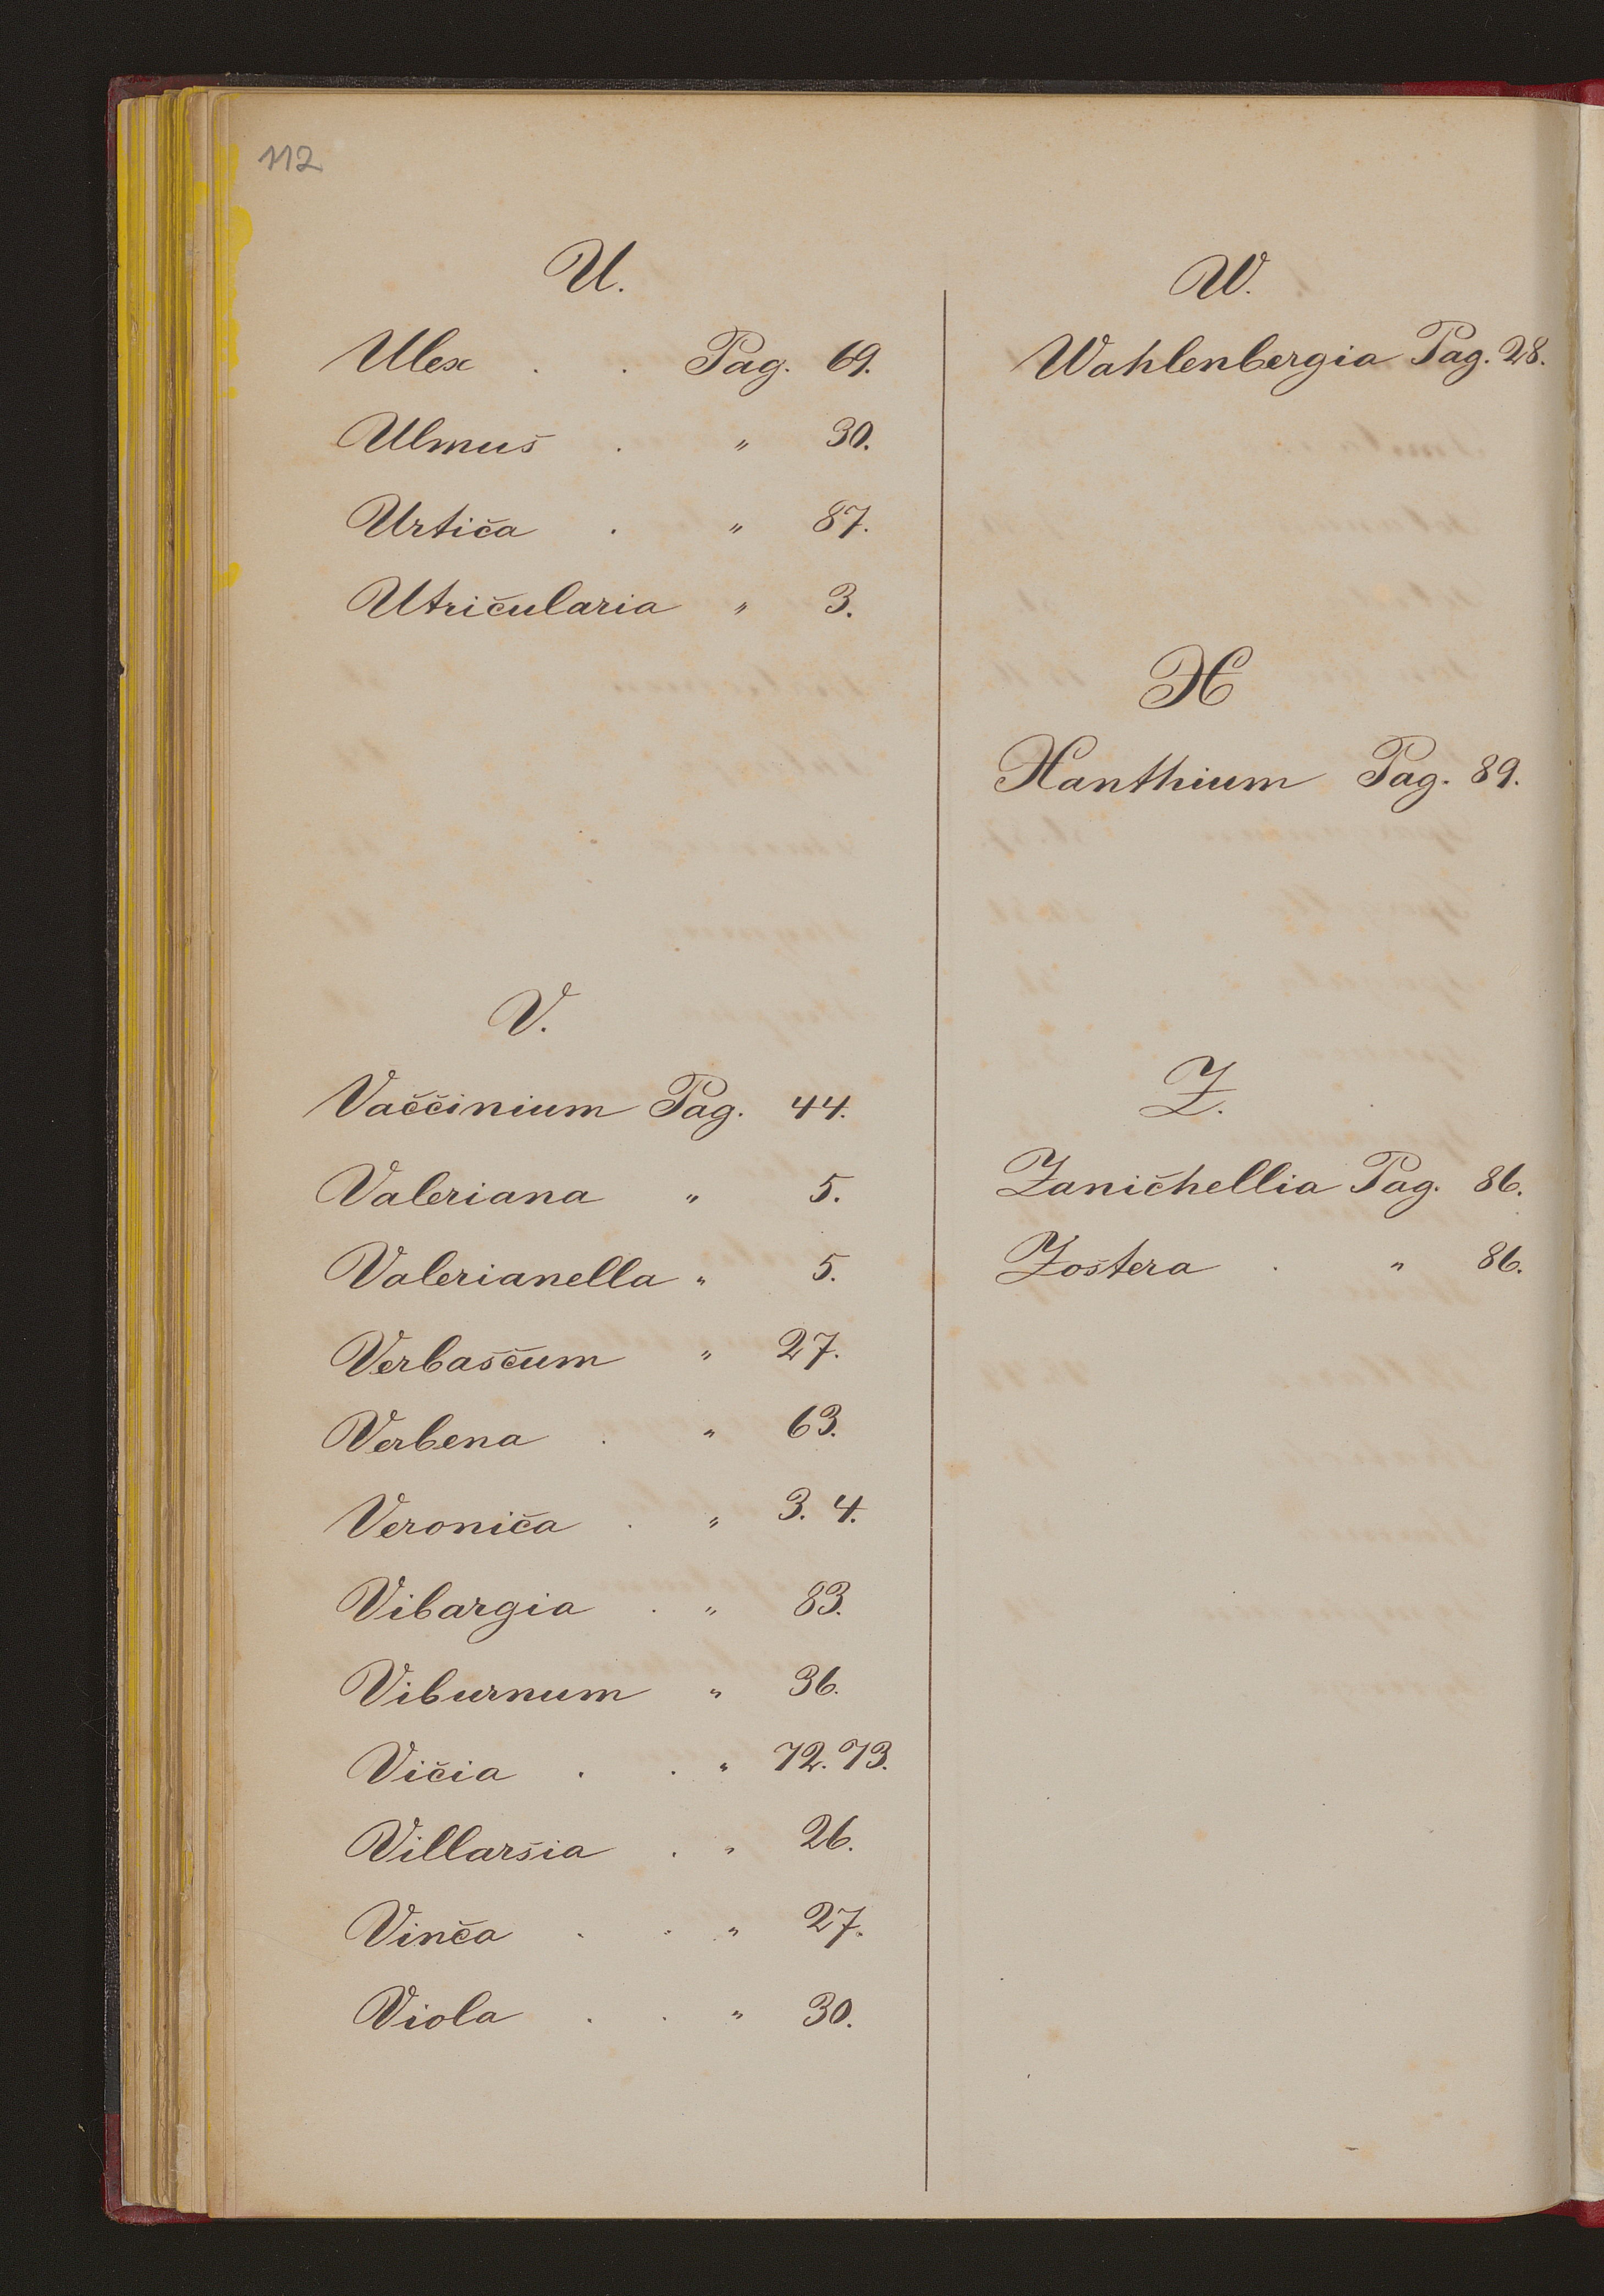 112
U.
Ulex . . Pag. 69.
Ulmus . " 30.
Urtica . " 87.
Utricularia " 3.
V.
Vaccinium Pag. 44.
Valeriana " 5.
Valerianella " 5.
Verbascum " 27.
Verbena . " 63.
Veronica . " 3. 4.
Vibargia . " 83.
Viburnum " 36.
Vicia . . " 72. 73.
Villarsia . " 26.
Vinca . . " 27.
Viola . . " 30.
W.
Wahlenbergia Pag. 28.
X
Xanthium Pag. 89.
Z.
Zanichellia Pag. 86.
Zostera . " 86.